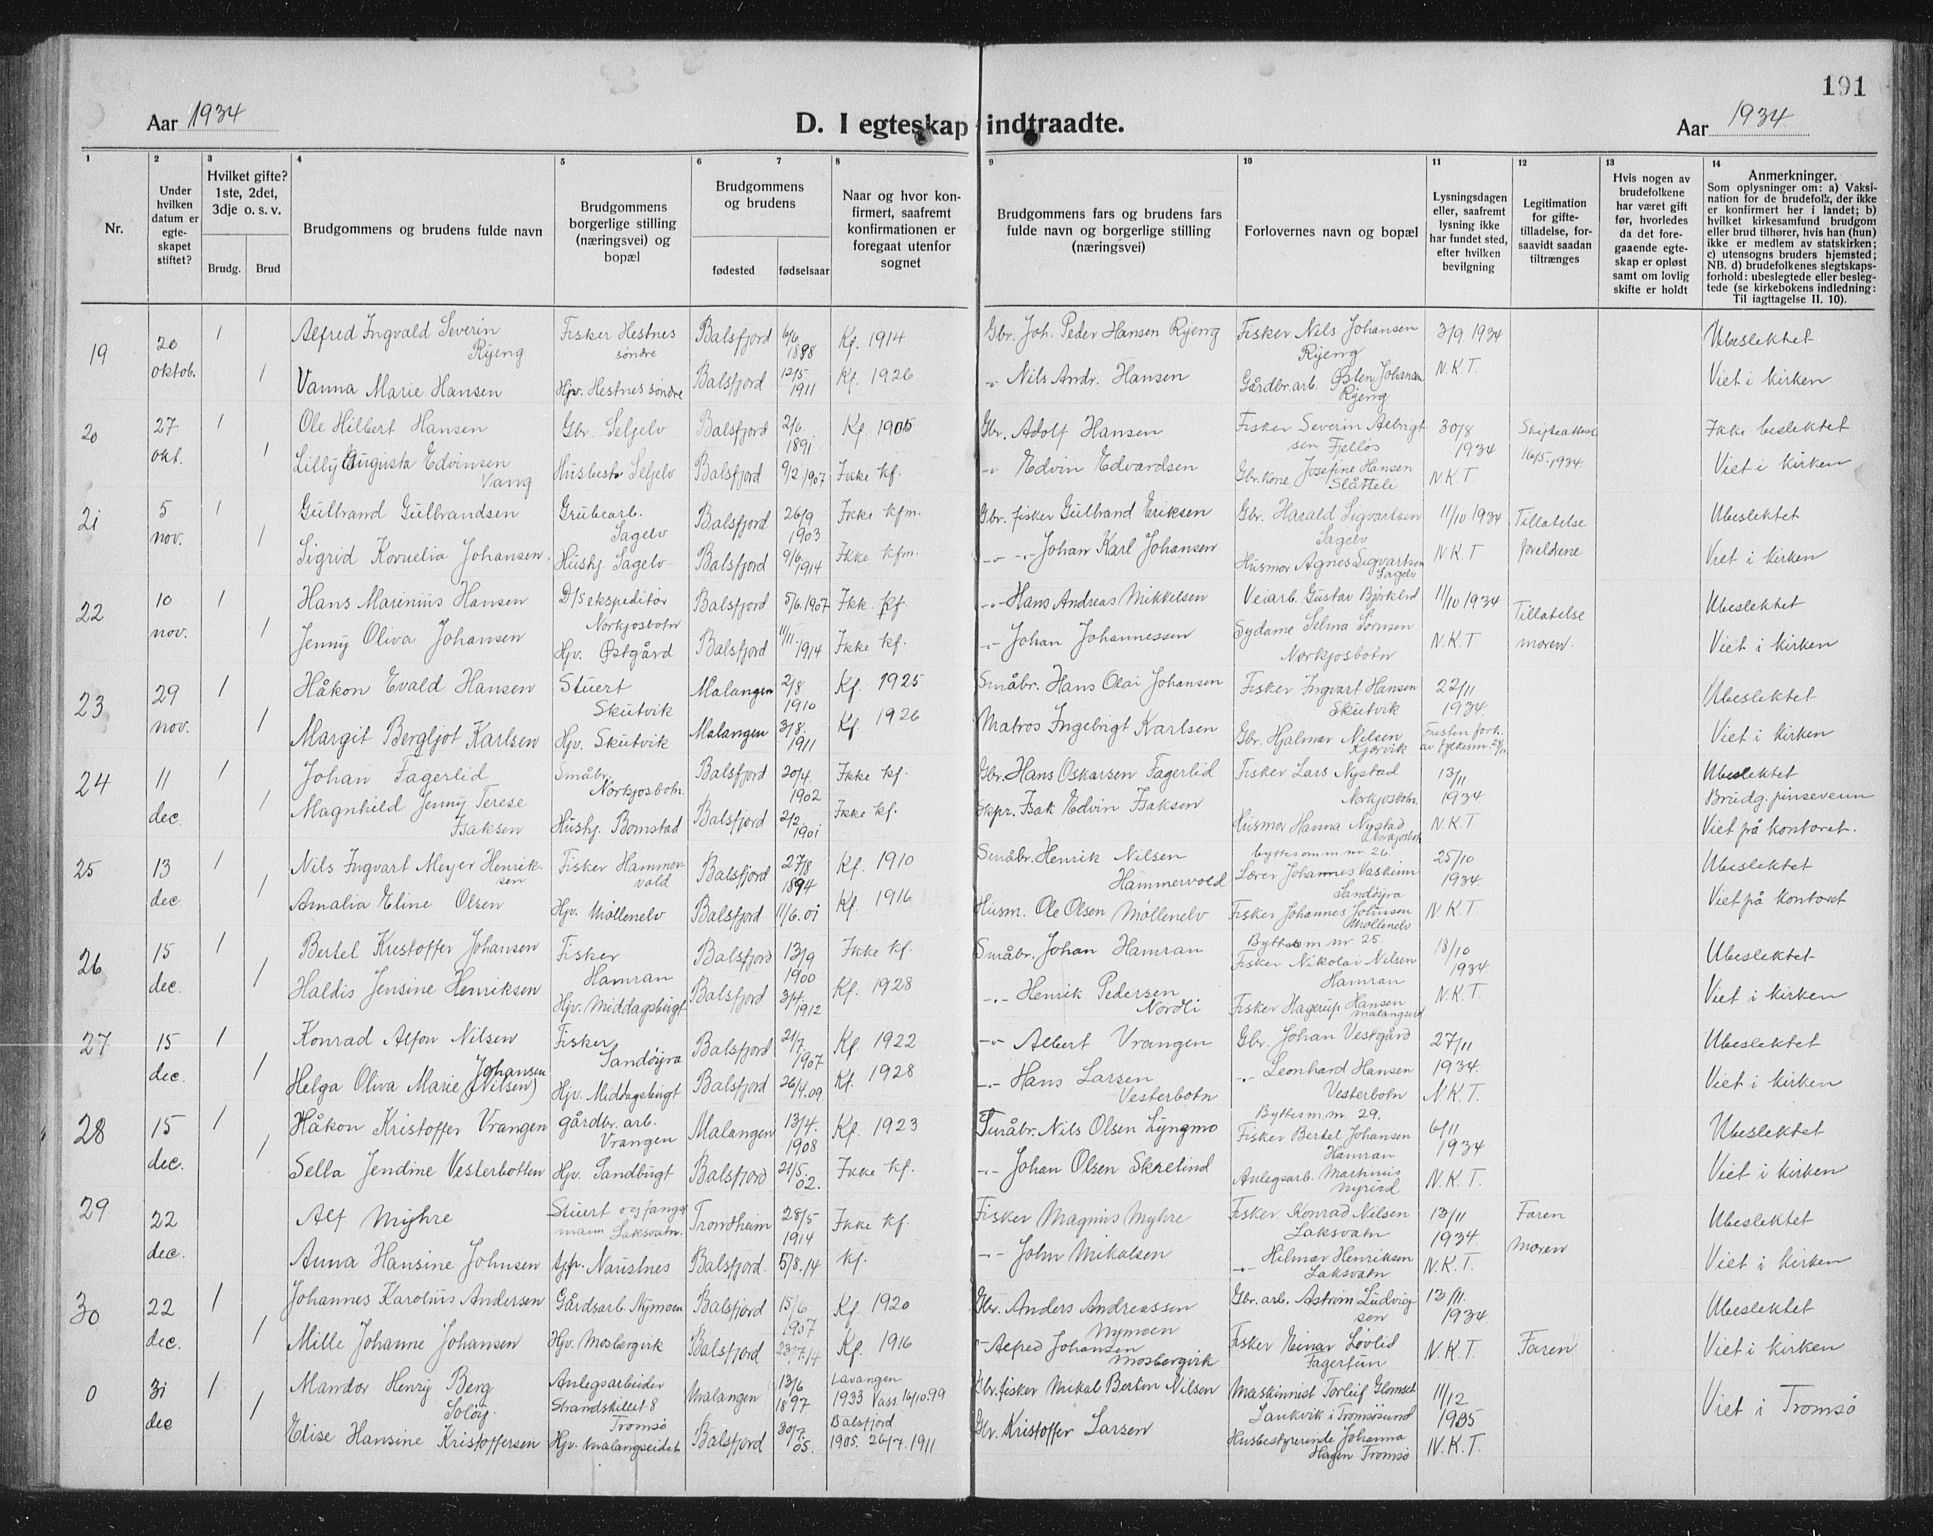 191
Aar 1934
D. I egteskap indtraadte.
Aar 1934
1
Nr.
2
Under hvilken datum er egteskapet stiftet?
3
Hvilket gifte? 1ste, 2det, 3dje o. s. v.
Brudg.
Brud
4
Brudgommens og brudens fulde navn
5
Brudgommens borgerlige stilling (næringsvei) og bopæl
Brudgommens og brudens
6
fødested
7
fødselsaar
8
Naar og hvor konfirmert, saafremt konfirmationen er foregaat utenfor sognet
9
Brudgommens fars og brudens fars fulde navn og borgerlige stilling (næringsvei)
10
Forlovernes navn og bopæl
11
Lysningsdagen eller, saafremt lysning ikke har fundet sted, efter hvilken bevilgning
12
Legitimation for giftetilladelse, forsaavidt saadan tiltrænges
13
Hvis nogen av brudefolkene har været gift før, hvorledes da det foregaaende egteskap er opløst samt om lovlig skifte er holdt
14
Anmerkninger.
Som oplysninger om: a) Vaksination for de brudefolk, der ikke er konfirmert her i landet; b) hvilket kirkesamfund brudgom eller brud tilhører, hvis han (hun) ikke er medlem av statskirken; c) utensogns bruders hjemsted; NB. d) brudefolkenes slegtskapsforhold: ubeslegtede eller beslegtede (se kirkebokens indledning: Til iagttagelse II. 10).
19 20 oktob. 1 Alfred Ingvald Severin Ryeng Fisker Hestnes søndre Balsfjord 6/6 1898 Kf. 1914 Gbr. Joh. Peder Hansen Ryeng Fisker Nils Johansen Ryeng 3/9 1934 Ubeslektet
1 Vanna Marie Hansen Hjv. Hestnes søndre Balsfjord 12/5 1911 Kf. 1926 -"- Nils Andr. Hansen Gårdbr.arb. Østen Johansen Ryeng N.K.T. Viet i kirken
20 27 okt. 1 Ole Hilbert Hansen Gbr. Seljelv Balsfjord 2/6 1891 Kf. 1905 Gbr. Adolf Hansen Fisker Severin Albrigtsen Fjellås 30/8 1934 Skifteattest 16/5-1934 Ikke beslektet
1 Lilly Augusta Edvinsen Vang Husbest. Seljelv Balsfjord 9/2 1907 Ikke kf. -"- Edvin Edvardsen Gbr.kone Josefine Hansen Slåtteli N.K.T Viet i kirken
21 5 nov. 1 Gulbrand Gulbrandsen Grubearb. Sagelv Balsfjord 26/9 1903 Ikke kfm. Gbr. fisker Gulbrand Eriksen Gbr. Harald Sigvartsen Sagelv 11/10 1934 Tillatelse Ubeslektet
1 Sigrid Kornelia Johansen. Hushj. Sagelv Balsfjord 9/6 1914 Ikke kfm. -"- -"- Johan Karl Johansen Husmor Agnes Sigvartsen Sagelv N.K.T foreldrene Viet i kirken
22 10 nov. 1 Hans Marinius Hansen D/Sekspeditør Norkjosbotn Balsfjord 5/6.1907 Ikk. Kf -"- Hans Andreas Mikkelsen Veiarb. Gustav Bjørklid 11/10 1934 Tillatelse Ubeslektet
1 Jenny Oliva Johansen Hjv. Østgård Balsfjord 11/11.1914 Ikke kf. -"- Johan Johannessen Sydame Selma Sørnsen Norkjosbotn N.K.T. moren. Viet i kirken
23 29 nov. 1 Håkon Evald Hansen Stuert Skutvik Malangen 2/8 1910 Kf. 1925 Småbr. Hans Olai Johansen Fisker Ingvart Hansen Skutvik 22/11 1934. Ubeslektet
1 Margit Bergljot Karlsen Hjv. Skutvik Malangen 3/8. 1911 Kf. 1926 Matros Ingebrigt Karlsen Gbr. Hjalmar Nilsen Kjærvik Viet i kirken
24 11 dec. 1 Johan Fagerlid Småbr. Norkjosbotn. Balsfjord 20/4. 1902 Ikke kf. Gbr. Hans Oskarsen Fagerlid Fisker Lars Nystad Norkjosbotn. 13/11 1934. Ubeslektet Brudg. pinsevenn
1 Magnhild Jenny Terese Isaksen Hushj. Bomstad Balsfjord 2/2. 1901 Ikke kf. Skpr. Isak Edvin Isaksen Husmor Hanna Nystad Norkjosbotn N.K.T Viet på kontoret.
25 13 dec. 1 Nils Ingvart Meyer Henriksen Fisker Hammervold Balsfjord 27/8 1894 Kf. 1910 Småbr. Henrik Nilsen Hammervold byttes om m. nr. 26. Lærer Johannes Vaskinn Sandøyra 25/10 1934. Ubeslektet
1 Amalia Eline Olsen Hjv. Møllenelv Balsfjord 11/6.01 Kf. 1916 Husm. Ole Olsen Møllenelv Fisker Johannes Johnsen Møllenelv N.K.T. Viet på kontoret
26 15 dec. 1 Bertel Kristoffer Johansen Fisker Hamran Balsfjord 13/9 1900 Ikke kf. Småbr. Johan Hamran Byttes om m nr. 25 Fisker Nikolai Nilsen Hamran 18/10 1934. Ubeslektet
1 Haldis Jensine Henriksen Hjv. Middagsbugt Balsfjord 3/4. 1912 Kf. 1928 -"- Henrik Pedersen Nordli Fisker Hagerup Hansen N.K.T. Viet i kirken
27 15 dec. 1 Konrad Alfon Nilsen Fisker Sandøyra Balsfjord 21/7. 1907 Kf. 1922 -"- Albert Vrangen Gbr. Johan Vestgård 27/11 1934. Ubeslektet
1 Helga Oliva Marie Johansen (Nilsen) Hjv. Middagsbugt Balsfjord 26/4.09. Kf. 1928 -"- Hans Larsen Vesterbotn -"- Leonhard Hansen Vesterbotn N.K.T. Viet i kirken
28 15 dec. 1 Håkon Kristoffer Vrangen gårdbr. arb. Vrangen Malangen 13/4. 1908 Kf. 1923 Småbr. Nils Olsen Lyngmo Byttes m. nr. 29. Fisker Bertel Johansen Hamran 6/11 1934 Ubeslektet
1 Sella Jendine Vesterbotten Hjv. Sandbugt Balsfjord 21/5. 02. Ikke kf. -"- Johan Olsen Skrelind Anlegsarb. Martinus Myrvd N.K.T. Viet i kirken
29 22 dec. Alf Myhre Stuert og fangstmann Laksvatn. Trondheim 28/5 1914 Ikke kf. Fisker Magnus Myhre Fisker Konrad Nilsen Laksvatn 13/11 1934. Faren Ubeslektet
Anna Hansine Johnsen Hjv. Naustnes Balsfjord. 5/8.14 kf. -"- John Mikalsen -"- Hilmar Henriksen Laksvatn N.K.T. Moren Viet i kirken
30 22 dec. 1 Johannes Karolius Andersen Gårdsarb. Nymoen Balsfjord 15/6 1907 Kf. 1920 Gbr. Anders Andreassen Nymoen Gbr. arb. Astrom Ludvigsen 13/11. 1934. Ubeslektet
1 Mille Johanne Johansen Hjv. Mosbergvik Balsfjord 23/7.14 Kf. 1916 -"- Alfred Johansen Mosbergvik Fisker Einar Løvlid Fagerfjun N.K.T. Faren Viet i kirken
0 31 dec 1 Mandor Henry Berg Soløy Anlegsarbeider Strandskillet 8 Tromsø Malangen 13/6 1897 Lavangen 1933 Vass. 16/10.99 Gbr. fisker Mikal Berton Nilsen Maskinnist Torleif Glomset Laukvik i Tromsøsund 11/12 1935 Viet i Tromsø
1 Elise Hansine Kristoffersen Hjv. Malangseidet Balsfjord 30/7. 05. Balsfjord 1905. 26/7.1911 Gbr. Kristoffer Larsen Husbestyrerinde Johanna Hagen Tromsø N.K.T.